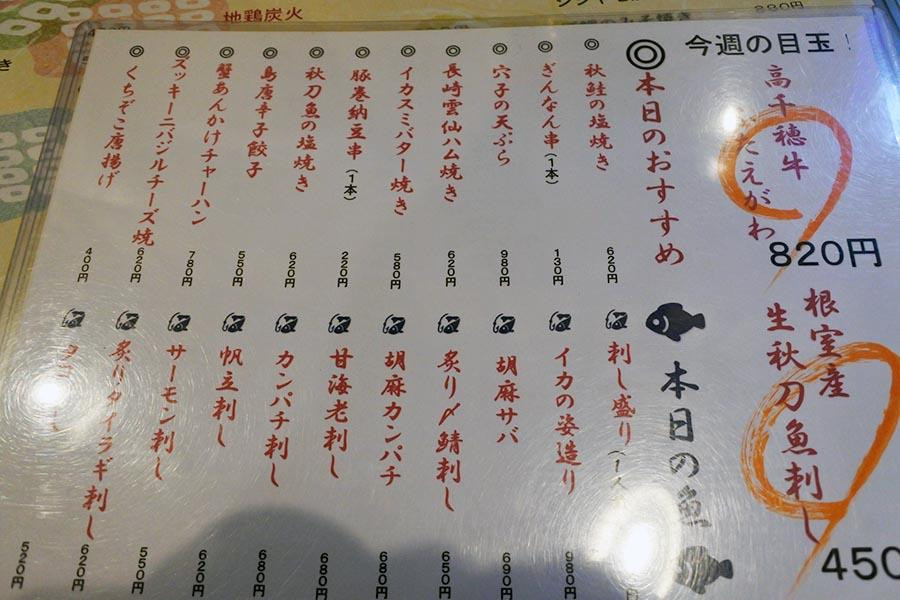 地鶏炭火
880円
今週の目玉！
高千穂牛
こえがわ
820円
根室産
生秋刀魚刺し
450
◎本日のおすすめ
◎秋鮭の塩焼き 620円
◎ぎんなん串(1本) 130円
◎穴子の天ぷら 980円
◎長崎雲仙ハム焼き 620円
◎イカスミバター焼き 580円
◎豚巻納豆串(1本) 220円
◎秋刀魚の塩焼き 620円
◎鳥唐辛子餃子 550円
◎蟹あんかけチャーハン 780円
◎ズッキーニバジルチーズ焼 620円
◎くちぞこ唐揚げ 400円
本日の魚
刺し盛り(1
イカの姿造り 980円
胡麻サバ 690円
炙り〆鯖刺し 650円
胡麻カンパチ 680円
甘海老刺し 680円
カンパチ刺し 680円
帆立刺し 620円
サーモン刺し 550円
炙りタイラギ刺し 620円
520円